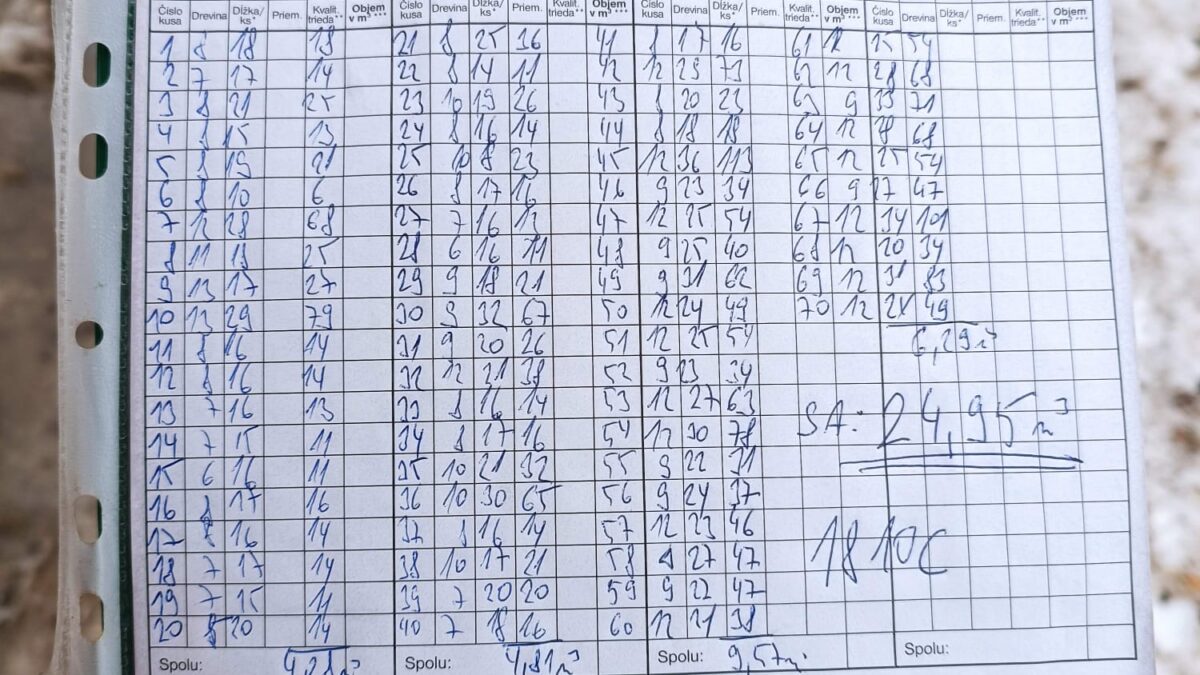 Číslo kusa Drevina Dĺžka/ ks* Priem. Kvalit. trieda** Objem v m³ *** Číslo kusa Drevina Dĺžka/ ks* Priem. Kvalit. trieda** Objem v m³ *** Číslo kusa Drevina Dĺžka/ ks* Priem. Kvalit. trieda** Objem v m³ *** Číslo kusa Drevina Dĺžka/ ks* Priem. Kvalit. trieda** Objem v m³ ***
1 8 18 18 21 8 25 36 41 8 17 16 61 12 25 54
2 7 17 14 22 8 14 11 42 12 29 73 62 12 28 68
3 8 21 25 23 10 19 26 43 8 20 23 63 9 33 71
4 8 15 13 24 8 16 14 44 8 18 18 64 12 28 68
5 8 19 21 25 10 8 23 45 12 36 113 65 12 25 54
6 8 10 6 26 8 17 16 46 9 23 34 66 9 27 47
7 12 28 68 27 7 16 13 47 12 25 54 67 12 34 101
8 11 18 25 28 6 16 11 48 9 25 40 68 12 20 34
9 13 17 27 29 9 18 21 49 9 31 62 69 12 31 83
10 13 29 79 30 9 32 67 50 12 24 49 70 12 24 49
11 8 16 14 31 9 20 26 51 12 25 54 6,29m³
12 8 16 14 32 12 21 38 52 9 23 34
13 7 16 13 33 8 16 14 53 12 27 63 SA: 24,95m³
14 7 15 11 34 8 17 16 54 12 30 78
15 6 16 11 35 10 21 32 55 9 22 31
16 8 17 16 36 10 30 65 56 9 24 37
17 8 16 14 37 8 16 14 57 12 23 46 1810C
18 7 17 14 38 10 17 21 58 27 47
19 7 15 11 39 7 20 20 59 9 22 47
20 8 20 14 40 7 18 16 60 12 21 38
Spolu: 4,28m³ Spolu: 4,81m³ Spolu: 9,57m³ Spolu: